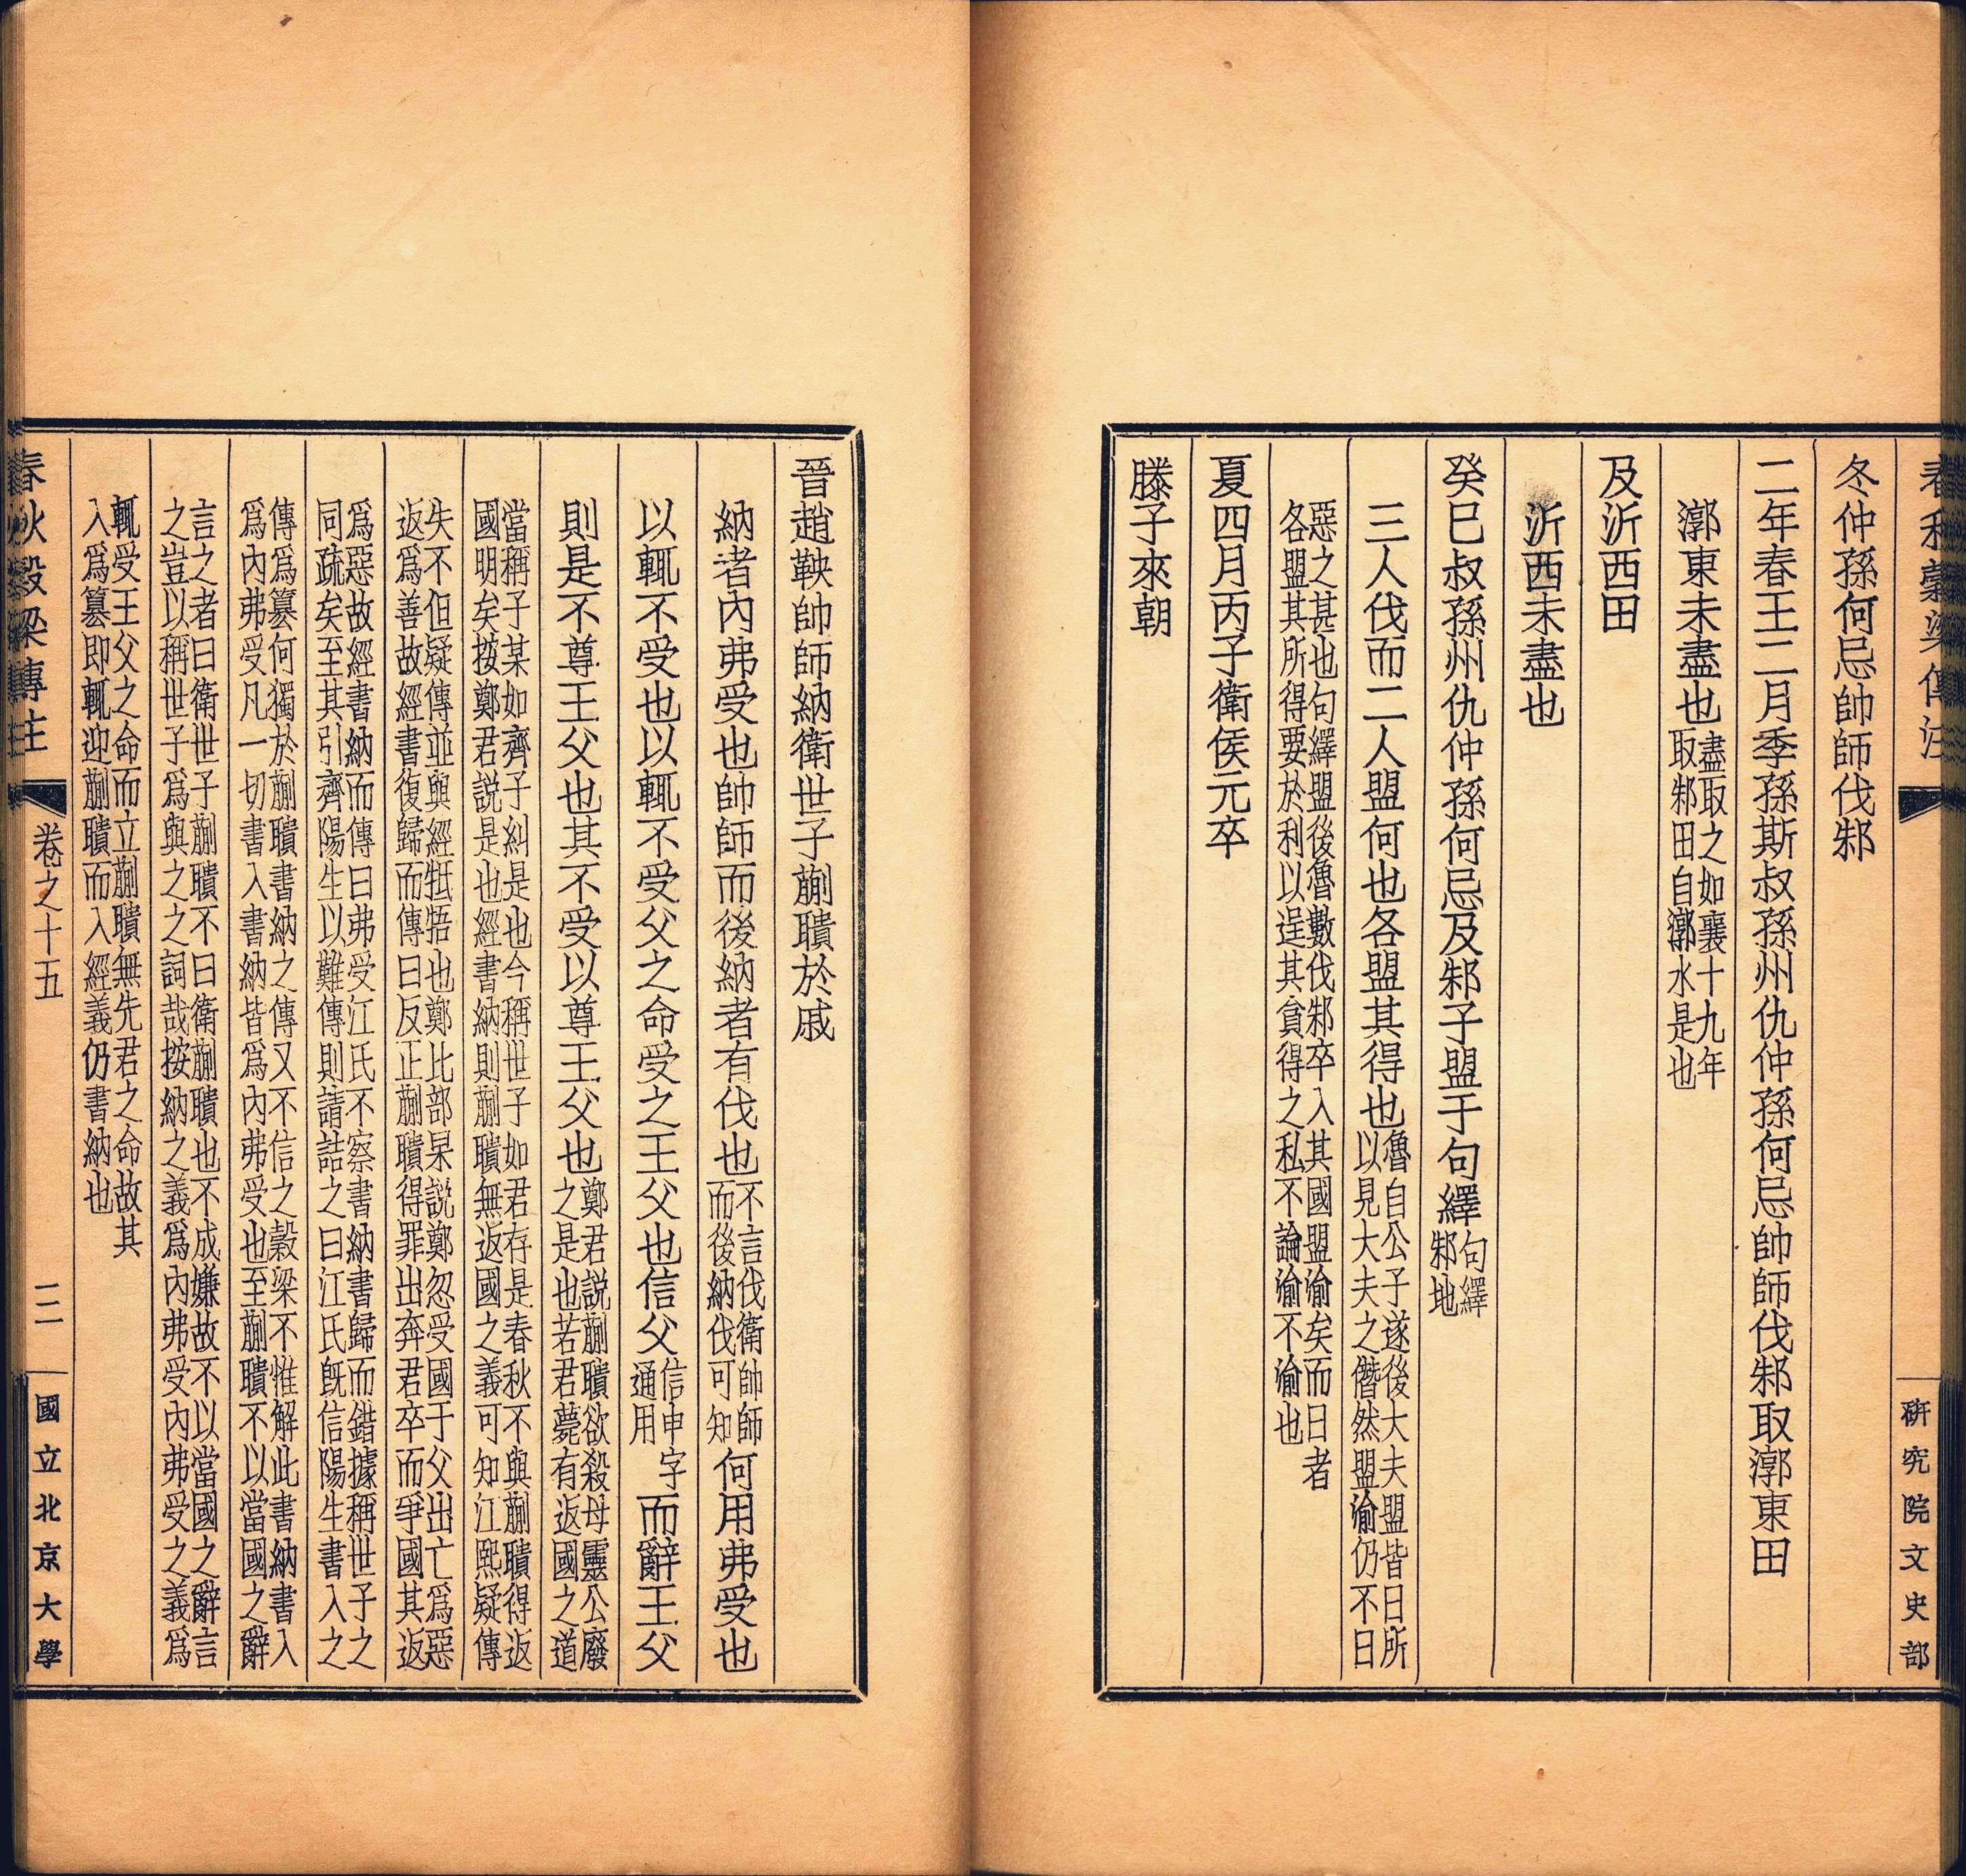 春秋穀梁傳注
研究院文史部
冬仲孫何忌帥師伐邾
二年春王二月季孫斯叔孫州仇仲孫何忌帥師伐邾取漷東田
漷東未盡也盡取之如襄十九年取邾田自漷水是也
及沂西田
沂西未盡也
癸巳叔孫州仇仲孫何忌及邾子盟于句繹句繹邾地
三人伐而二人盟何也各盟其得也魯自公子遂後大夫盟皆日所以見大夫之僭然盟渝仍不日
惡之甚也句繹盟後魯數伐邾卒入其國盟渝矣而日者各盟其所得要於利以逞其貪得之私不論渝不渝也
夏四月丙子衛侯元卒
滕子來朝
晉趙鞅帥師納衛世子蒯聵於戚
納者內弗受也帥師而後納者有伐也不言伐衛帥師而後納伐可知何用弗受也
以輒不受也以輒不受父之命受之王父也信父信申字通用而辭王父
則是不尊王父也其不受以尊王父也鄭君說蒯聵欲殺母靈公廢之是也若君薨有返國之道
當稱子某如齊子糾是也今稱世子如君存是春秋不與蒯聵得返國明矣按鄭君說是也經書納則蒯聵無返國之義可知江熙疑傳
失不但疑傳並與經牴牾也鄭比部杲說鄭忽受國于父出亡為惡返為善故經書復歸而傳曰反正蒯聵得罪出奔君卒而爭國其返
為惡故經書納而傳曰弗受江氏不察書納書歸而錯據稱世子之同疏矣至其引齊陽生以難傳則請詰之曰江氏既信陽生書入之
傳為篡何獨於蒯聵書納之傳又不信之穀梁不惟解此書納書入為內弗受凡一切書入書納皆為內弗受也至蒯聵不以當國之辭
言之者曰衛世子蒯聵不曰衛蒯聵也不成嫌故不以當國之辭言之豈以稱世子為與之之詞哉按納之義為內弗受內弗受之義為
輒受王父之命而立蒯聵無先君之命故其入為篡即輒迎蒯聵而入經義仍書納也
春秋穀梁傳注
卷之十五
二
國立北京大學